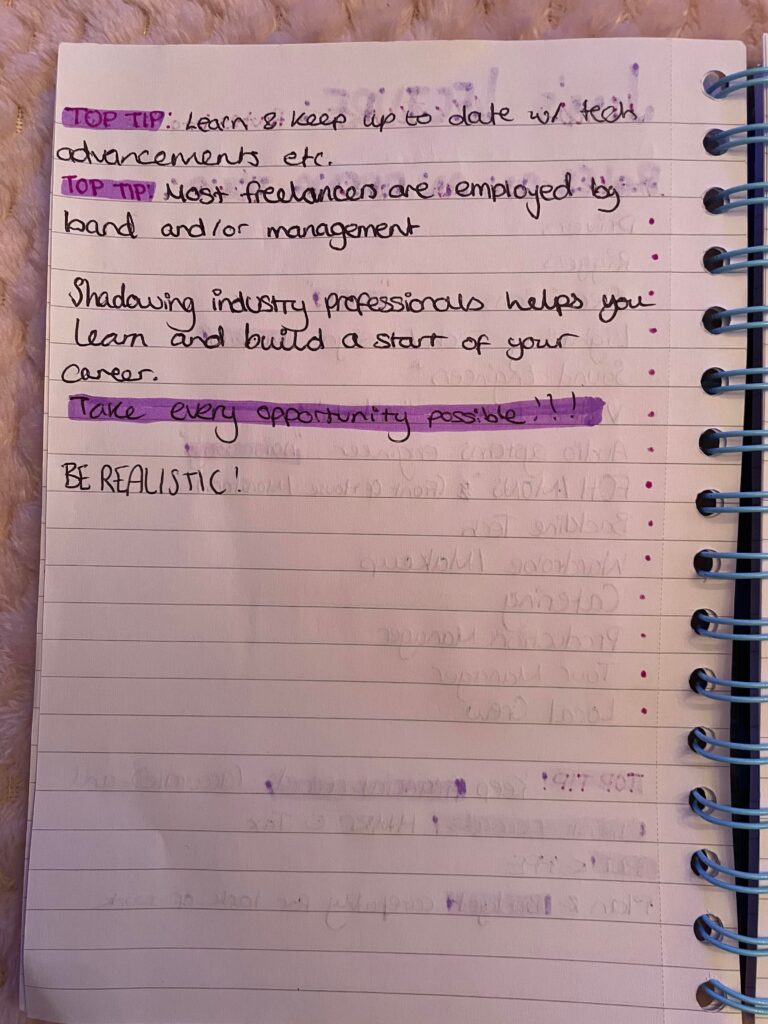 TOP TIP: Learn & keep up to date w/ tech
advancements etc.
TOP TIP: Most freelancers are employed by
band and/or management
Shadowing industry professionals helps you
learn and build a start of your
career.
Take every opportunity possible!!!
BE REALISTIC!